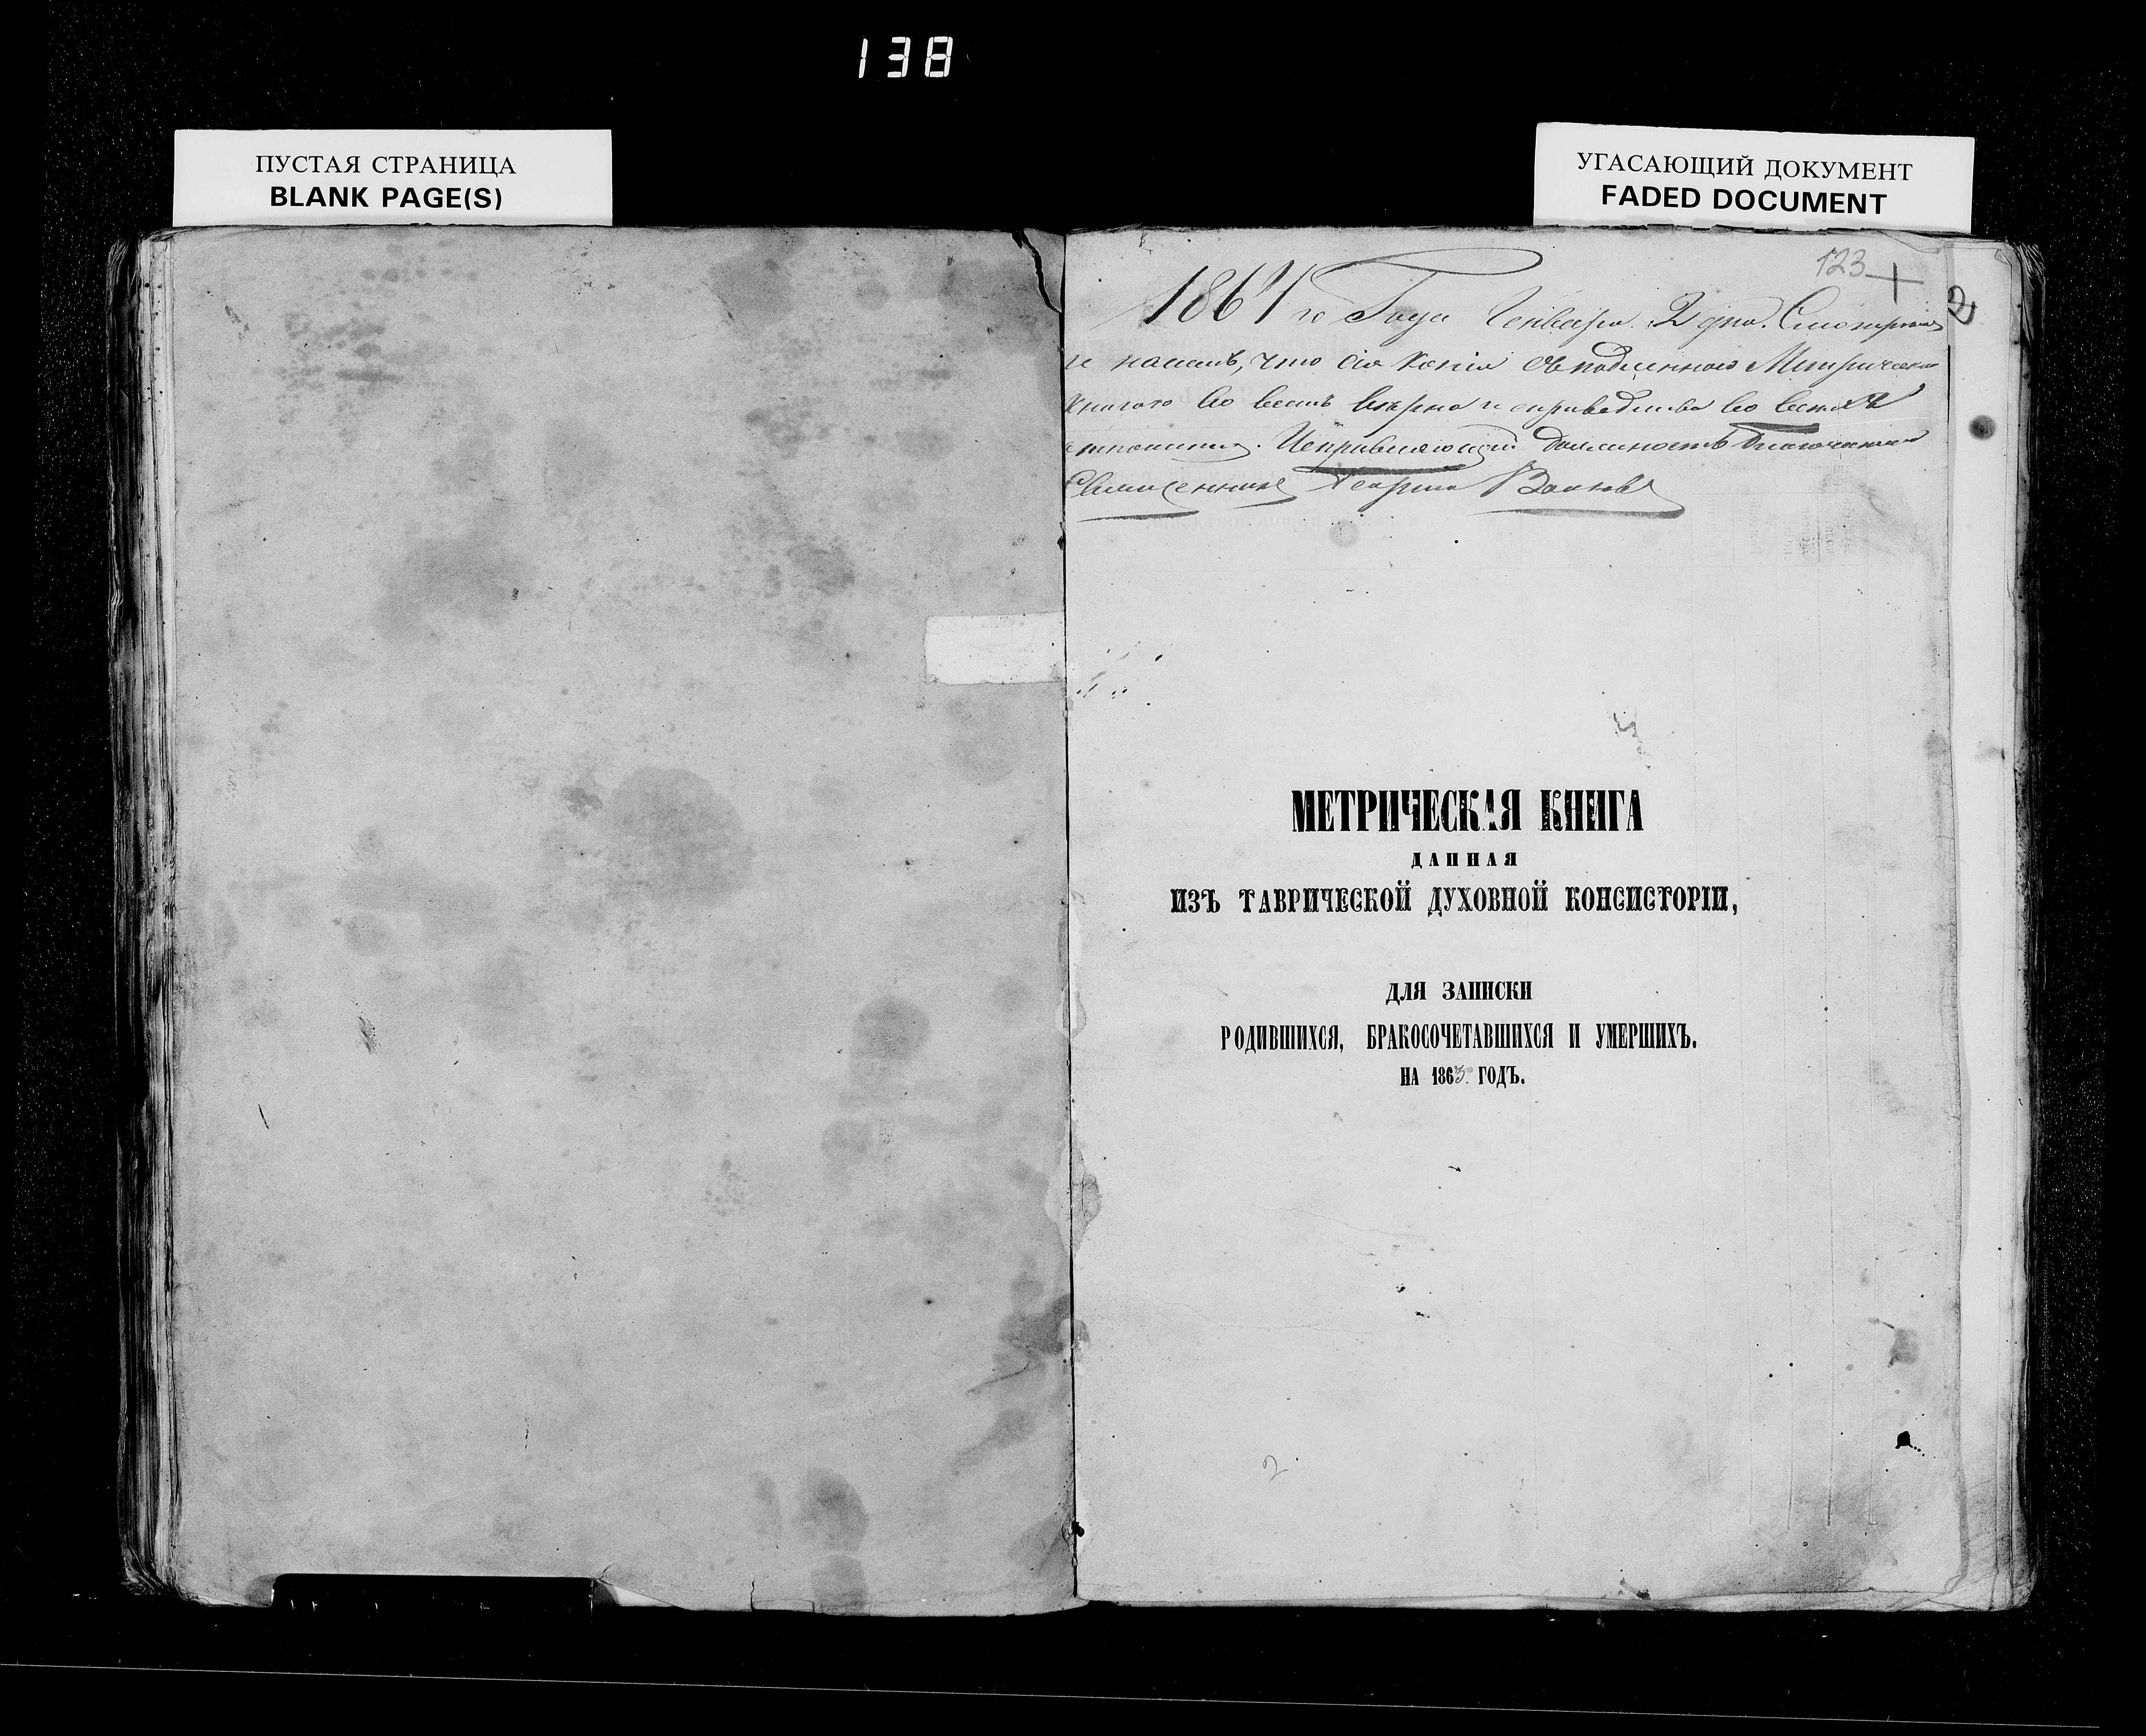 138
ПУСТАЯ СТРАНИЦА
BLANK PAGE(S)
УГАСАЮЩИЙ ДОКУМЕНТ
FADED DOCUMENT
123
2
1864 го Года Генваря 2 дня. Смотрѣны
и нашлъ, что сія копія съ подлинною Метрическою
книгою во всемъ вѣрна и справедлива во всѣхъ
Исправляющій должность Благочиннаго
Священникъ Георгій Волковъ
МЕТРИЧЕСКАЯ КНИГА
ДАННАЯ
ИЗЪ ТАВРИЧЕСКОЙ ДУХОВНОЙ КОНСИСТОРІИ,
ДЛЯ ЗАПИСКИ
РОДИВШИХСЯ, БРАКОСОЧЕТАВШИХСЯ И УМЕРШИХЪ.
НА 1863 ГОДЪ.
2